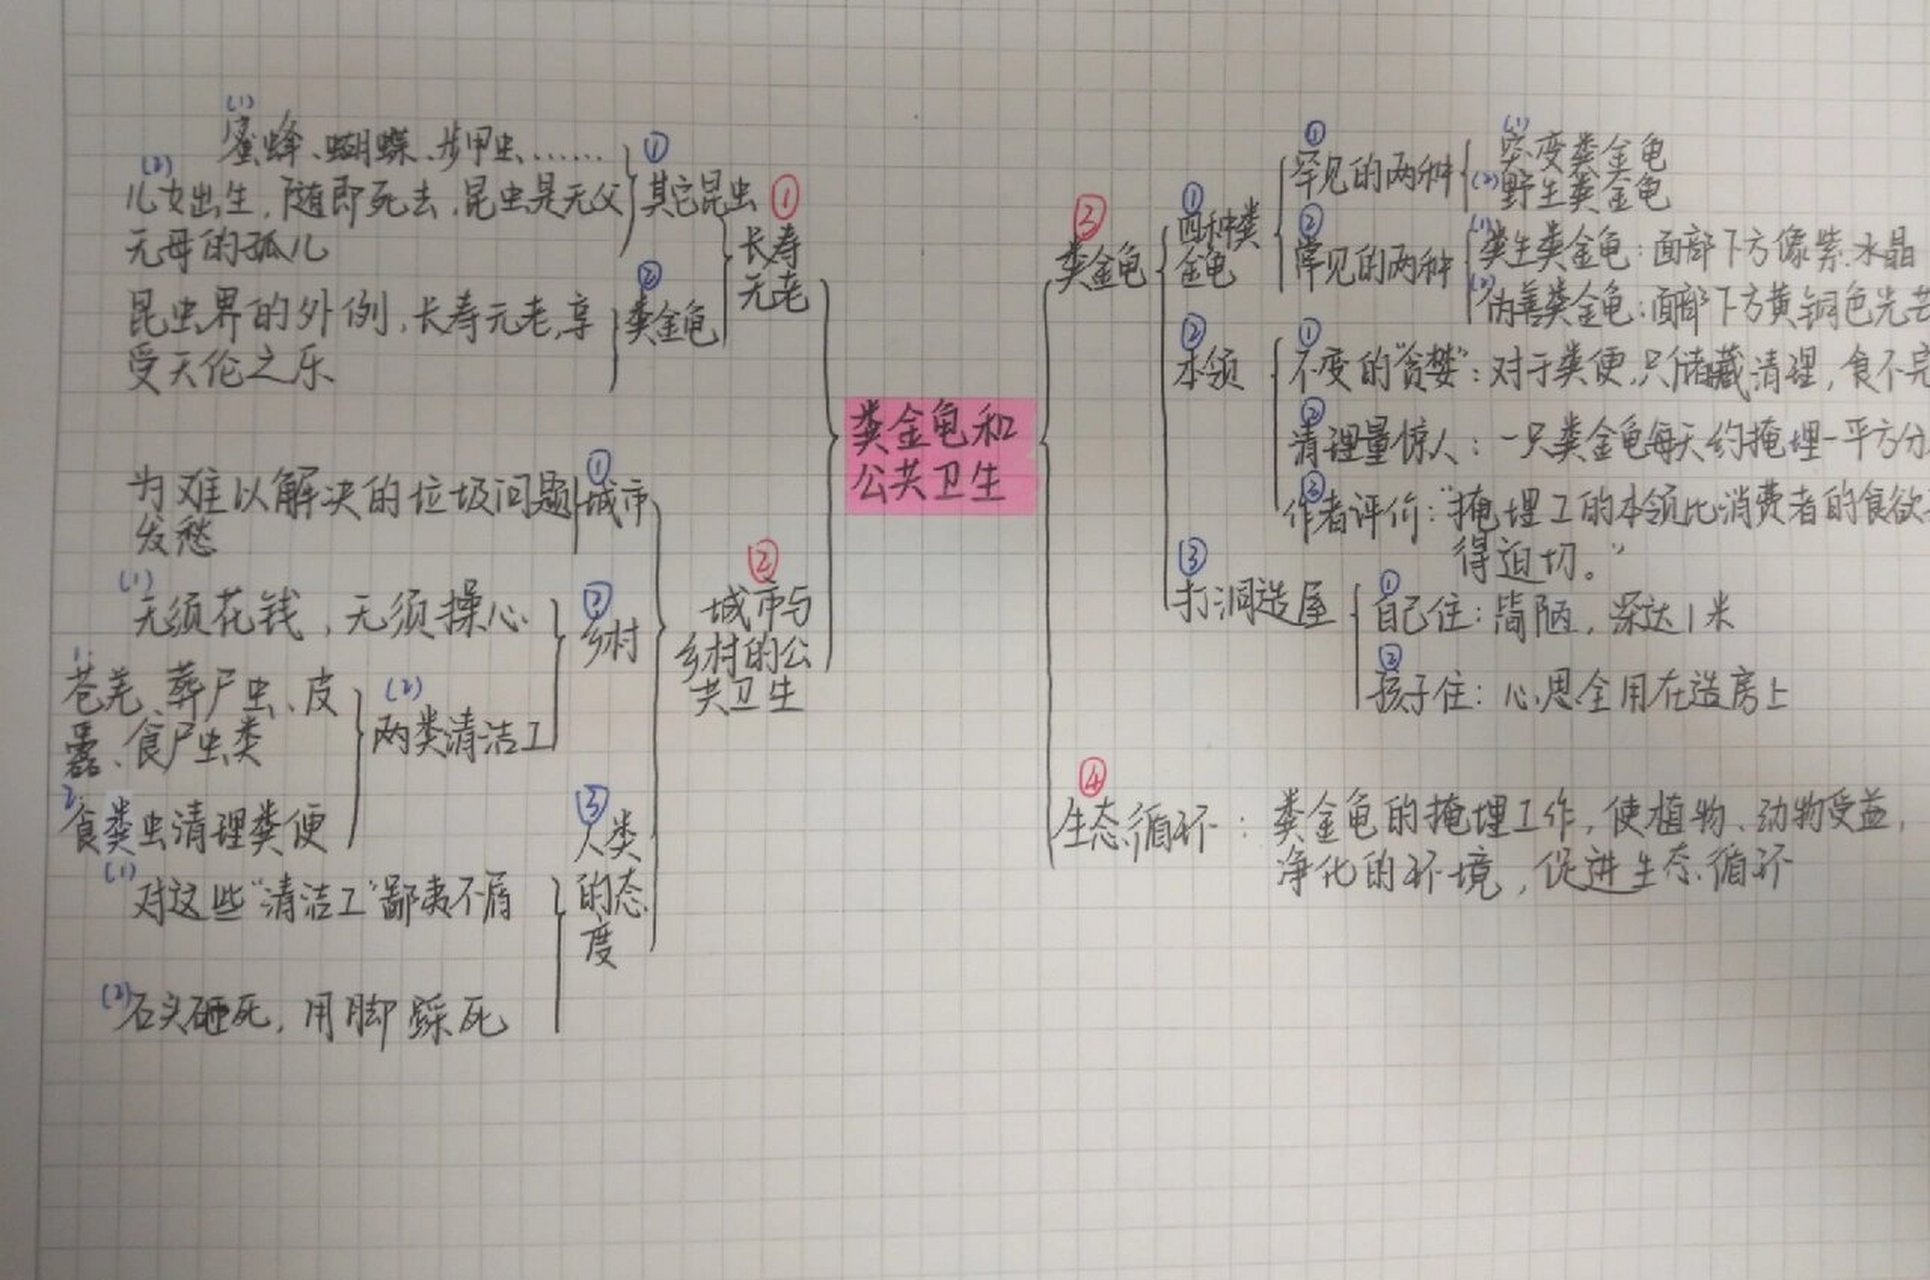 粪金龟和
公共卫生
①
长寿
元老
①
其它昆虫
(1)
蜜蜂、蝴蝶、步甲虫……
(2)
儿女出生,随即死去,昆虫是无父
无母的孤儿
②
粪金龟
昆虫界的外例,长寿元老,享
受天伦之乐
②
城市与
乡村的公
共卫生
①
城市
为难以解决的垃圾问题
发愁
②
乡村
(1)
无须花钱,无须操心
(2)
两类清洁工
1.
苍羌、葬尸虫、皮
蠹、食尸虫类
2.
食粪虫清理粪便
③
人类
的态
度
(1)
对这些“清洁工”鄙夷不屑
(2)石头砸死,用脚踩死
③
粪金龟
①
四种粪
金龟
①
罕见的两种
(1)
突变粪金龟
(2)野生粪金龟
②
常见的两种
(1)
粪生粪金龟:面部下方像紫水晶
(2)
伪善粪金龟:面部下方黄铜色光芒
②
本领
①
不变的“贪婪”:对于粪便,只储藏清理,食不完
②
清理量惊人:一只粪金龟每天约掩埋一平方分
③
作者评价:“掩埋工的本领比消费者的食欲
得迫切。”
③
打洞造屋
①
自己住:简陋,深达1米
②
孩子住:心思全用在造房上
④
生态循环:粪金龟的掩埋工作,使植物、动物受益,
净化的环境,促进生态循环